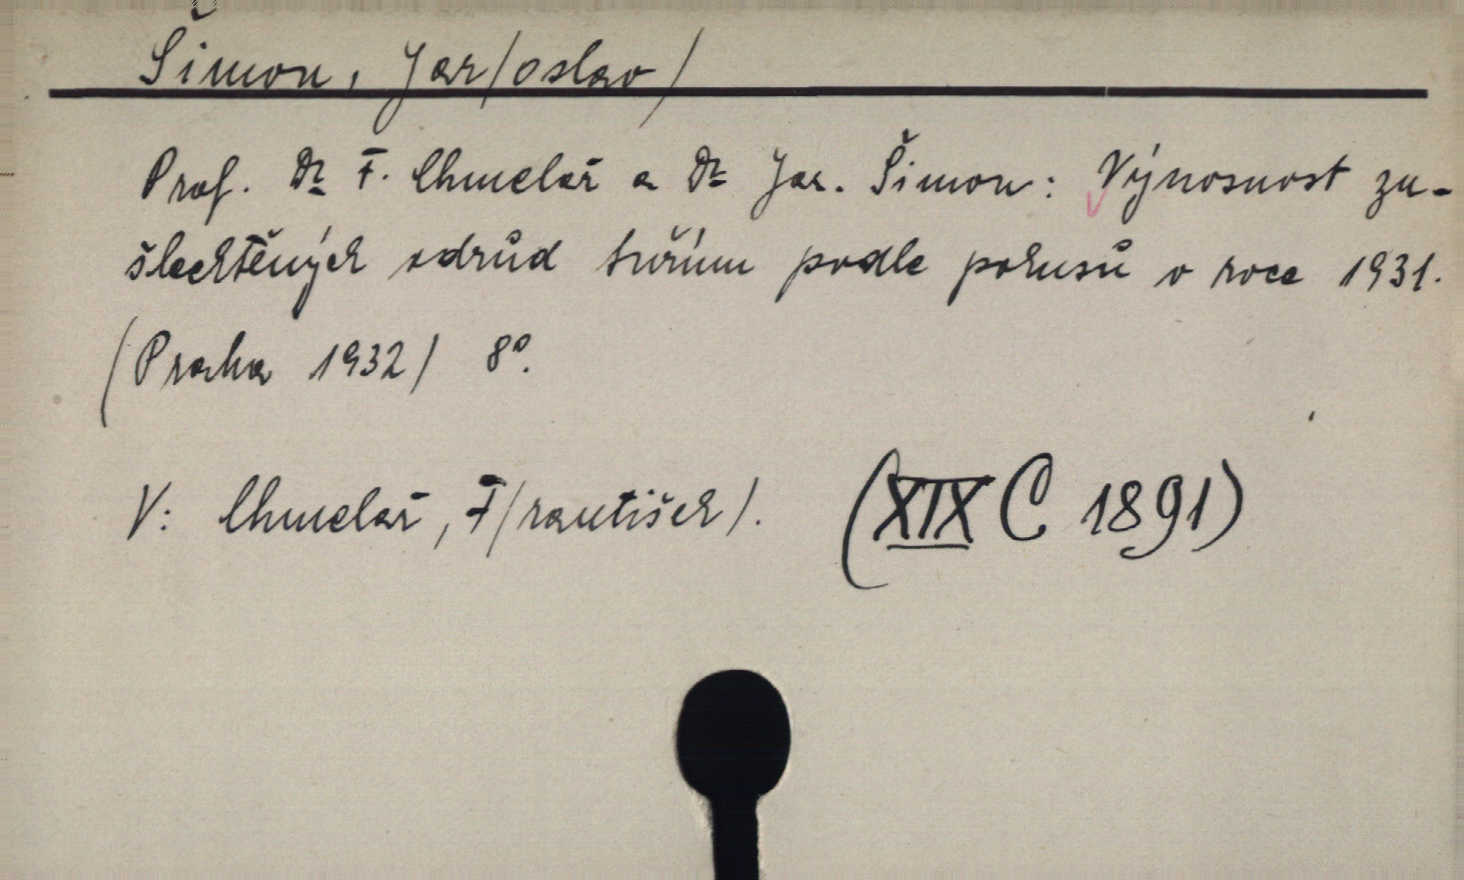 Šimon, Jar/oslav/
Prof. Dr F. Chmelař a Dr Jar. Šimon: Výnosnost zu-
šlechtěných odrůd tuřínu podle pokusů v roce 1931.
(Praha 1932) 8°.
V: Chmelař, F/rantišek/. (XIX C 1891)